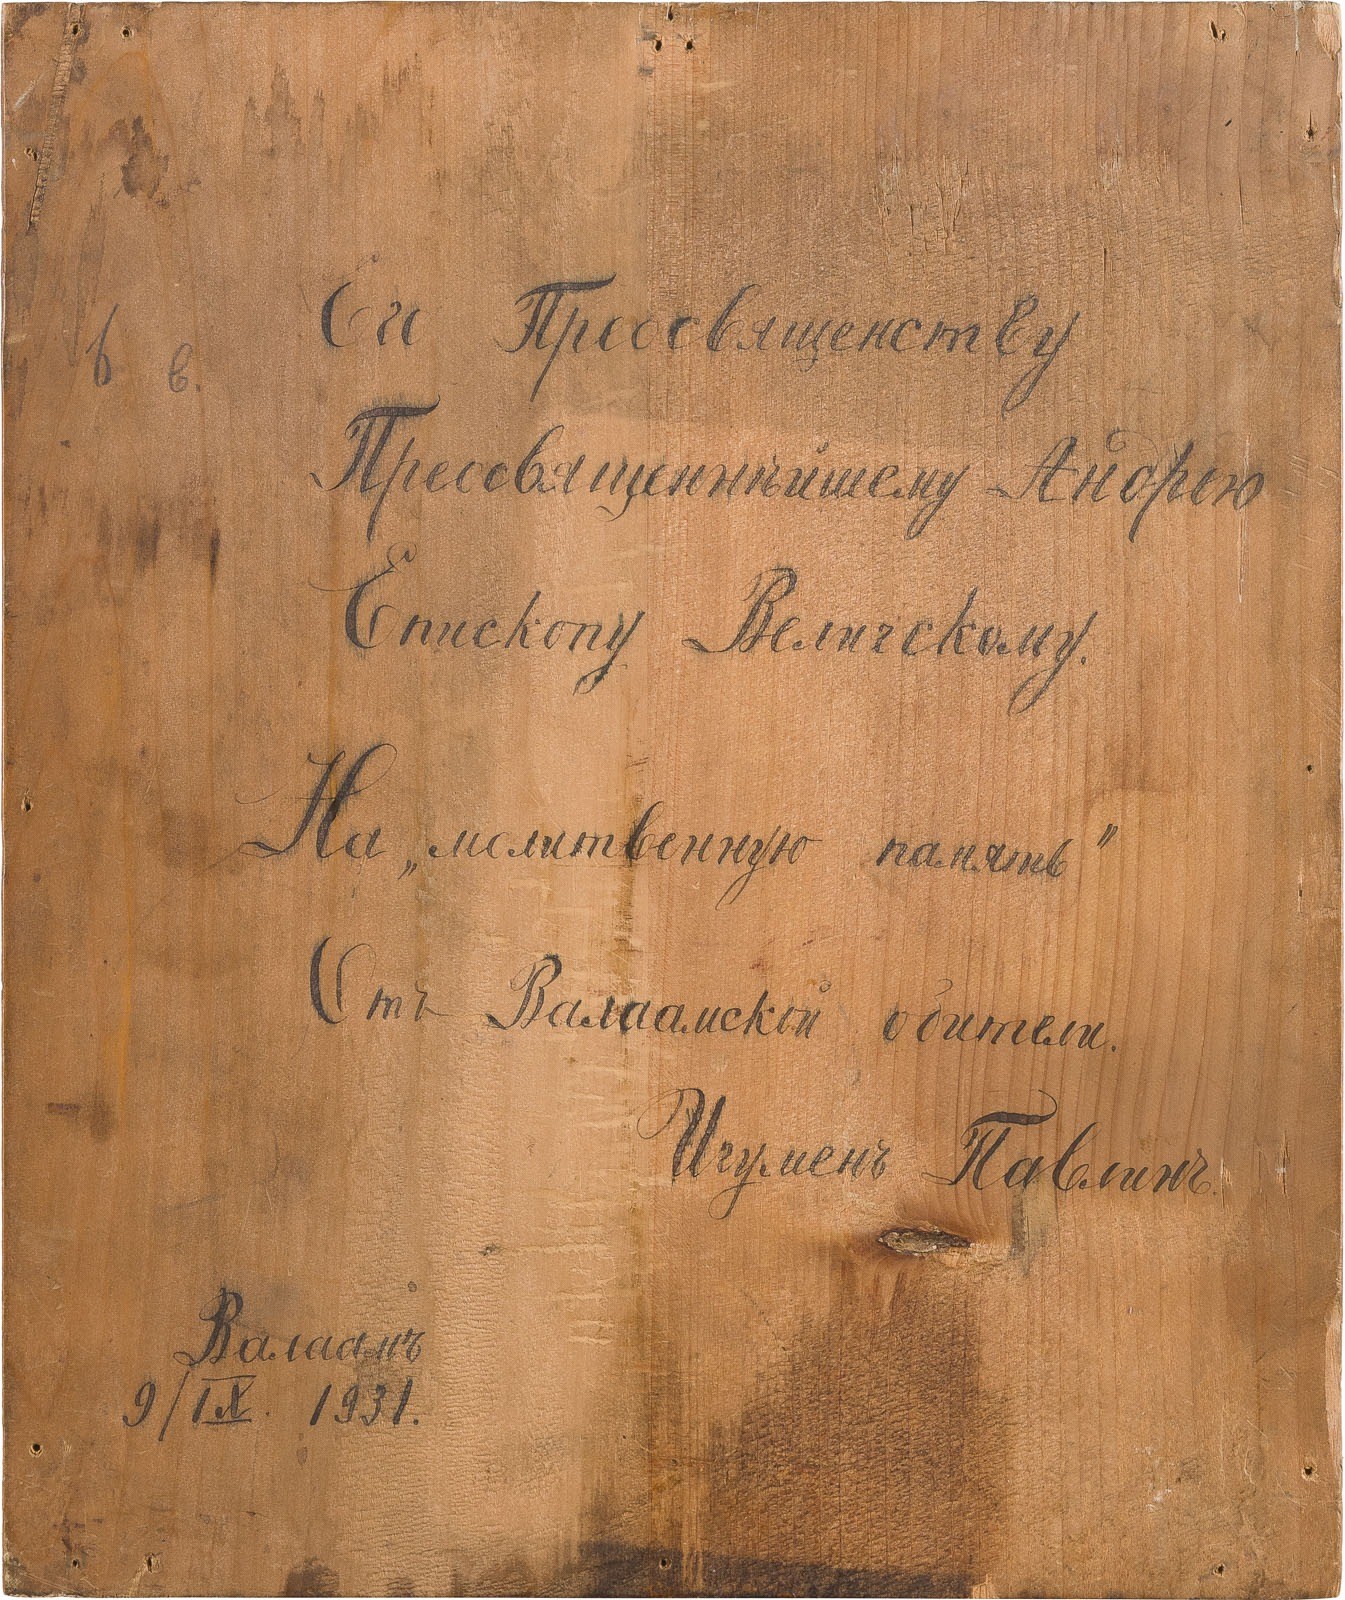 Его Преосвященству
в в.
Преосвященнѣйшему Андрею
Епископу Величскому.
На „молитвенную память"
Отъ Валаамской обители.
Игуменъ Павлинъ.
Валаамъ
9/IX. 1931.